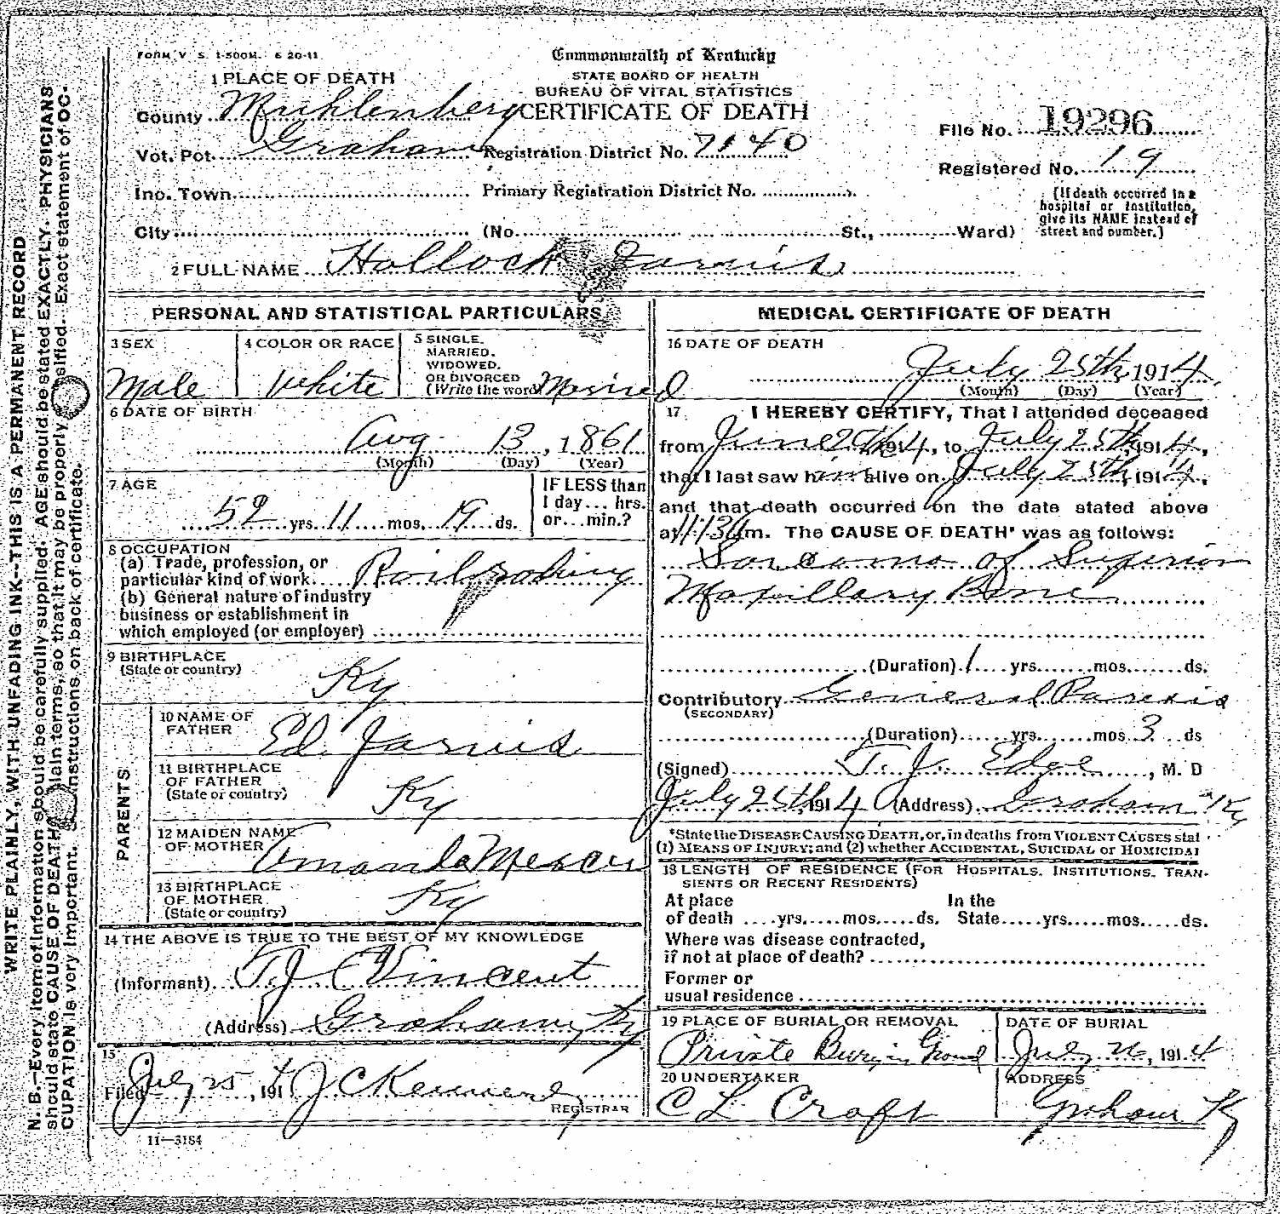 FORM V. S. 1-500M. 6 20-11
Commonwealth of Kentucky
STATE BOARD OF HEALTH
BUREAU OF VITAL STATISTICS
CERTIFICATE OF DEATH
1 PLACE OF DEATH
County Muhlenberg
Vot. Pct. Graham Registration District No. 7140
File No. 19296
Registered No. 19
Inc. Town Primary Registration District No.
City (No. St., Ward)
(If death occurred in a
hospital or institution,
give its NAME instead of
street and number.)
2 FULL NAME Hallock Jarvis
PERSONAL AND STATISTICAL PARTICULARS
3 SEX
Male
4 COLOR OR RACE
White
5 SINGLE.
MARRIED.
WIDOWED.
OR DIVORCED
(Write the word) Married
6 DATE OF BIRTH
Aug. 13, 1861
(Month) (Day) (Year)
7 AGE
52 yrs. 11 mos. 19 ds.
IF LESS than
1 day... hrs.
or...min.?
8 OCCUPATION
(a) Trade, profession, or
particular kind of work Railroading
(b) General nature of industry
business or establishment in
which employed (or employer)
9 BIRTHPLACE
(State or country)
Ky
PARENTS
10 NAME OF
FATHER
Ed. Jarvis
11 BIRTHPLACE
OF FATHER
(State or country)
Ky
12 MAIDEN NAME
OF MOTHER
Amanda Mercer
13 BIRTHPLACE
OF MOTHER.
(State or country)
Ky
14 THE ABOVE IS TRUE TO THE BEST OF MY KNOWLEDGE
(Informant) T. J. Vincent
(Address) Graham, Ky
15
Filed July 25, 1914 J C
REGISTRAR
11—3184
MEDICAL CERTIFICATE OF DEATH
16 DATE OF DEATH
July 25th, 1914
(Month) (Day) (Year)
17 I HEREBY CERTIFY, That I attended deceased
from June 1914, to July 25th, 1914,
that I last saw him alive on July 25th, 1914,
and that death occurred on the date stated above
at 11:30 m. The CAUSE OF DEATH* was as follows:
Sarcoma of Superior
Maxillary Bone
(Duration) 1 yrs. mos. ds.
Contributory General Paresis
(SECONDARY)
(Duration) yrs. mos. 3 ds
(Signed) T. J. Edge, M. D
July 25th 1914 (Address) Graham Ky
*State the DISEASE CAUSING DEATH, or, in deaths from VIOLENT CAUSES stat
(1) MEANS OF INJURY; and (2) whether ACCIDENTAL, SUICIDAL or HOMICIDAL
18 LENGTH OF RESIDENCE (FOR HOSPITALS. INSTITUTIONS. TRAN-
SIENTS OR RECENT RESIDENTS)
At place In the
of death yrs. mos. ds. State yrs. mos. ds.
Where was disease contracted,
if not at place of death?
Former or
usual residence
19 PLACE OF BURIAL OR REMOVAL
Private Buryin Ground
DATE OF BURIAL
July 26, 1914
20 UNDERTAKER
C L Craft
ADDRESS
Graham Ky
WRITE PLAINLY, WITH UNFADING INK—THIS IS A PERMANENT RECORD
N. B.—Every item of information should be carefully supplied. AGE should be stated EXACTLY. PHYSICIANS
should state CAUSE OF DEATH plain terms, so that it may be properly classified. Exact statement of OC-
CUPATION is very important. instructions on back of certificate.